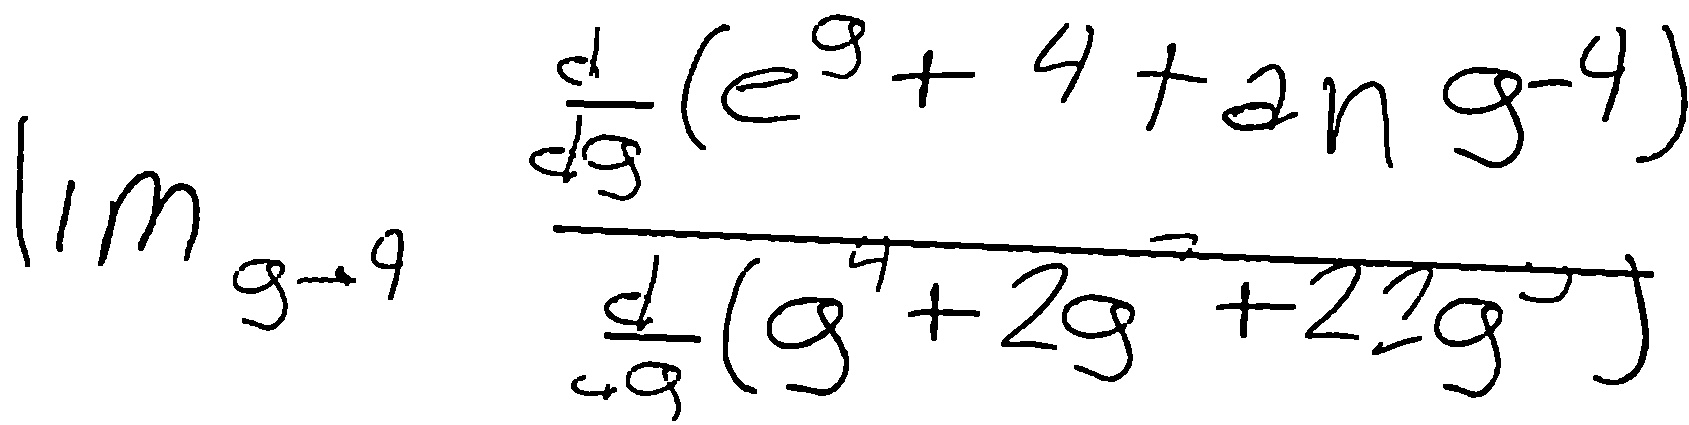 lim g→9 d/dg (e^g + 4 + an g - 4) / d/dg (g^4 + 2g + 22g)